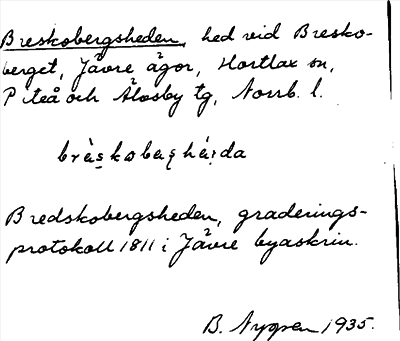 Breskobergsheden, hed vid Bresko-
berget, Jävre ägor, Hortlax sn,
Piteå och Älvsby tg, Norrb. l.
Bredskobergsheden, graderings-
protokoll 1811 i Jävre byaskrin.
B. Nygren 1935.